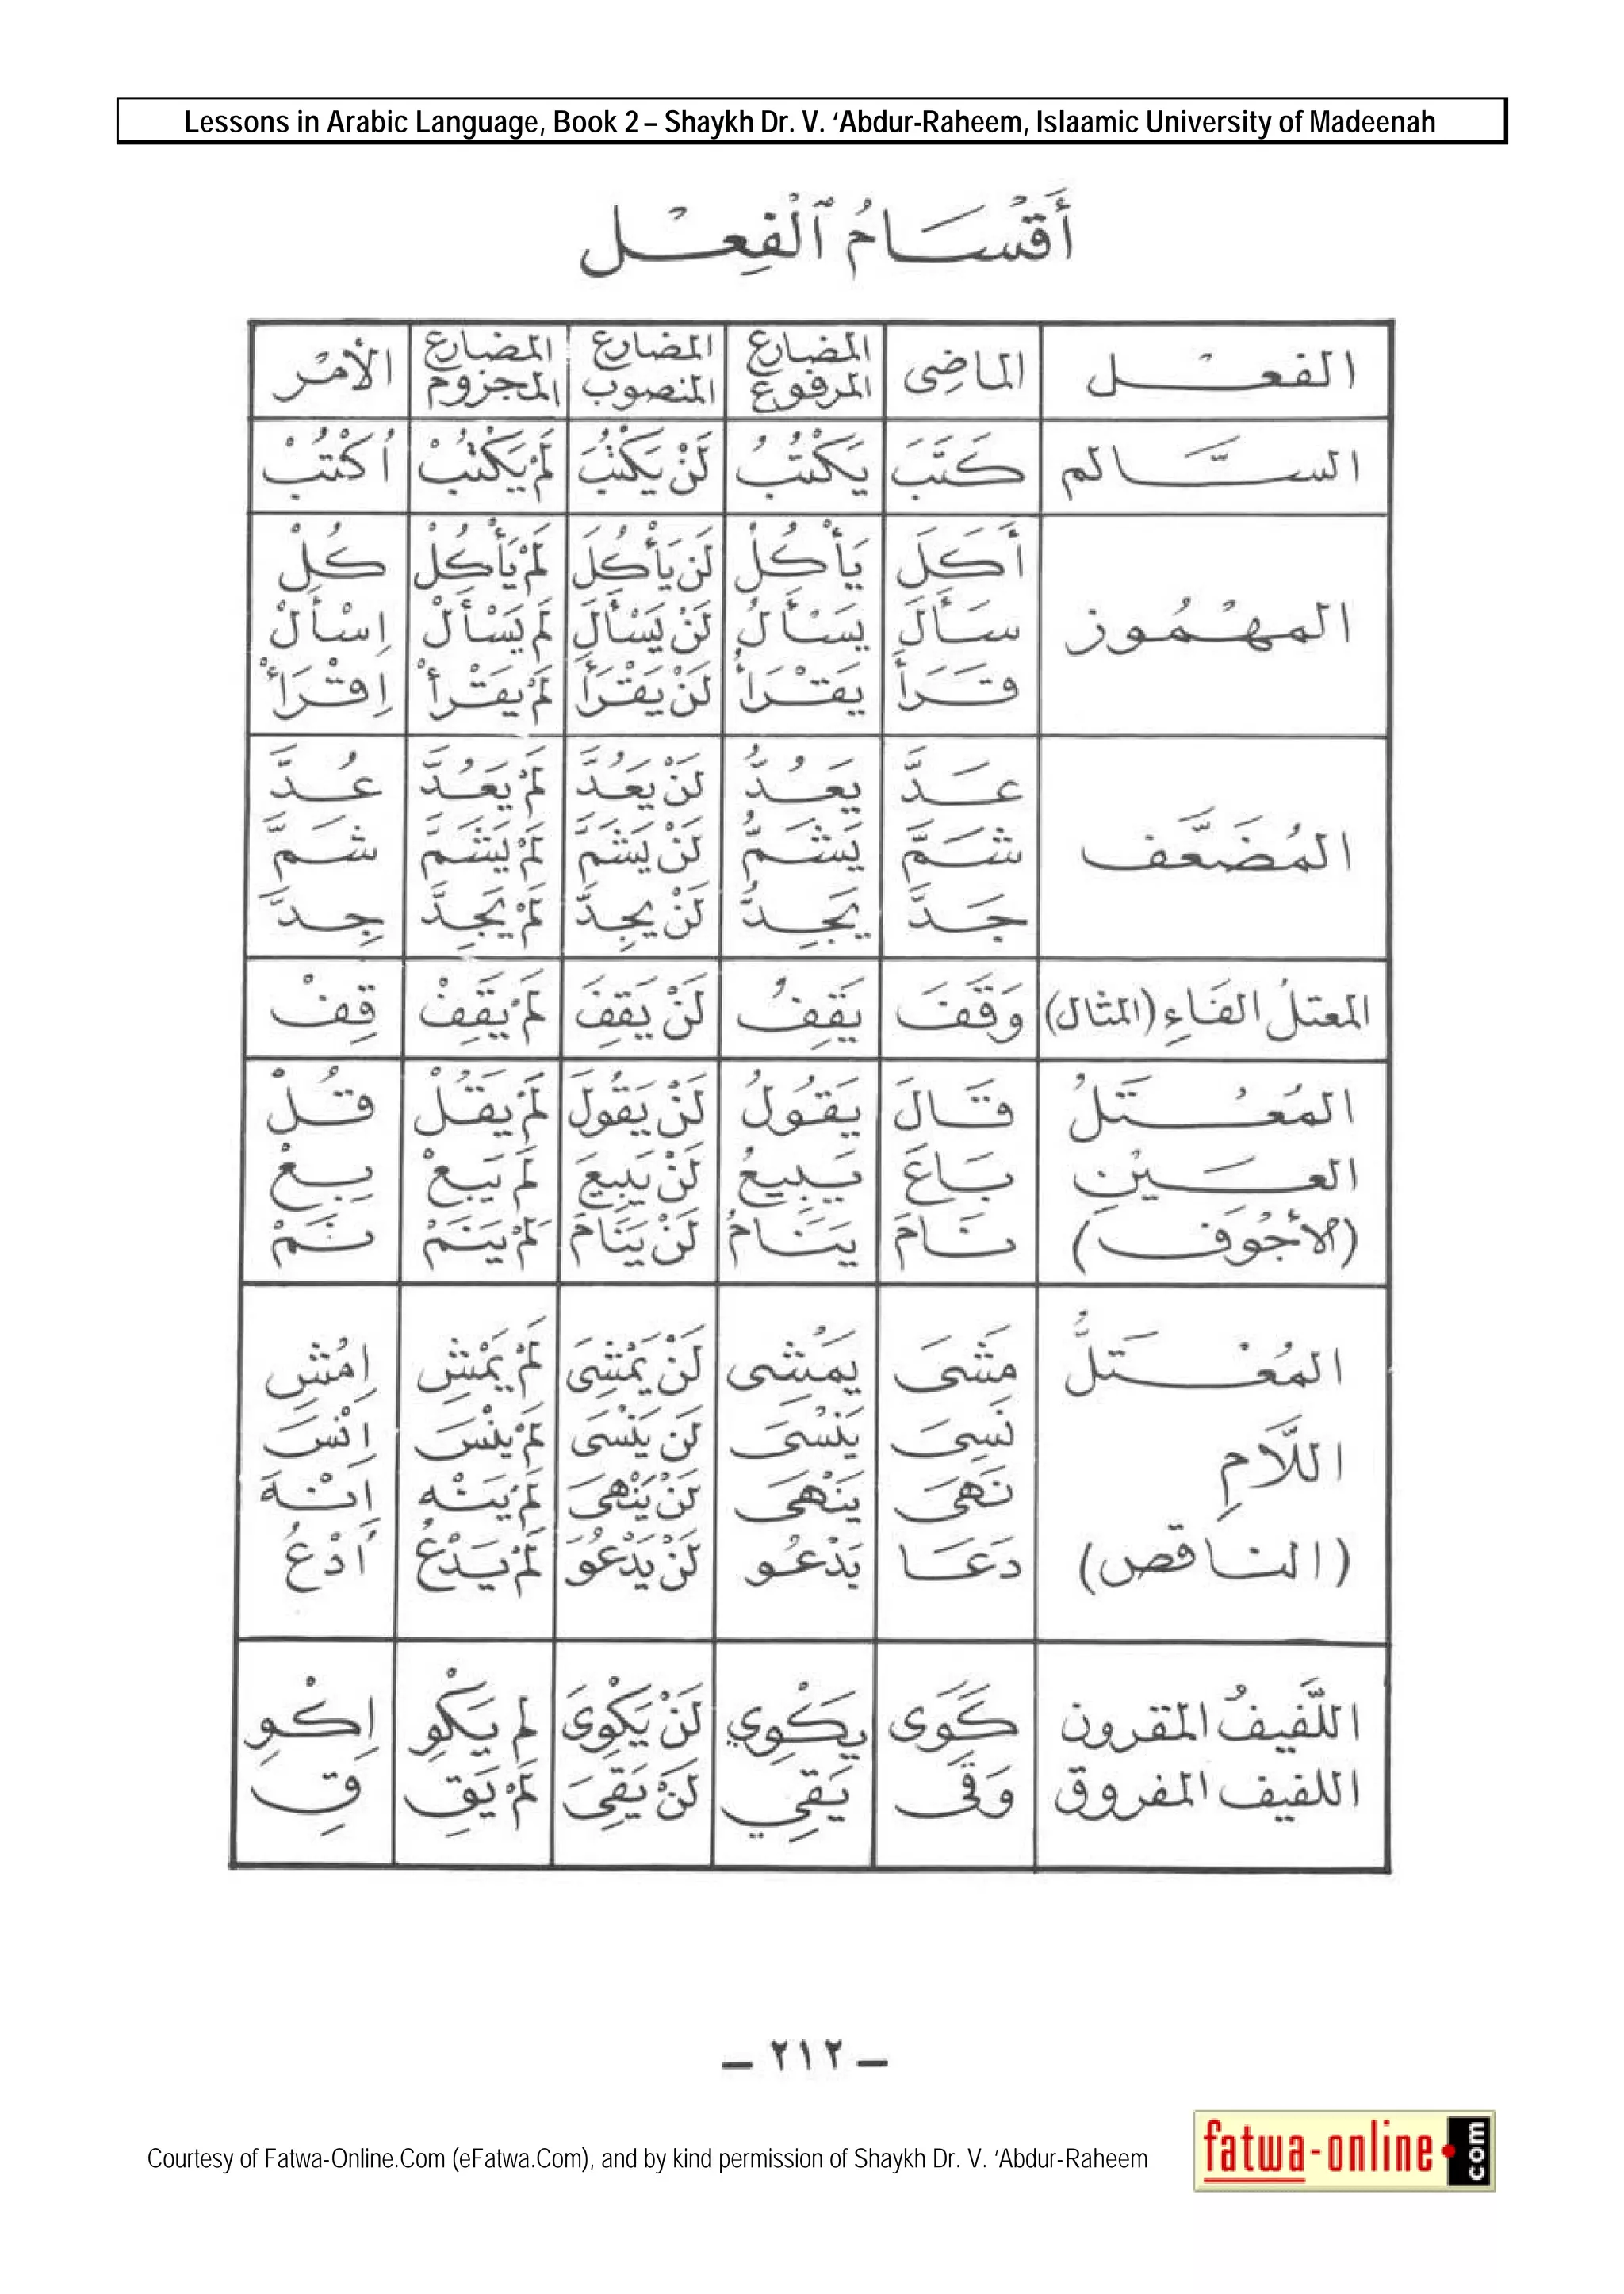 Lessons in Arabic Language, Book 2 – Shaykh Dr. V. ‘Abdur-Raheem, Islaamic University of Madeenah
أَقْسَامُ ٱلْفِعْل
الفعْل الماضِى المضارع المرفوع المضارع المنصوب المضارع المجزوم الأمْر
السَّالم كَتَبَ يَكْتُبُ لَنْ يَكْتُبَ لَمْ يَكْتُبْ اُكْتُبْ
المهْمُوز
أَكَلَ يَأْكُلُ لَنْ يَأْكُلَ لَمْ يَأْكُلْ كُلْ
سَأَلَ يَسْأَلُ لَنْ يَسْأَلَ لَمْ يَسْأَلْ اِسْأَلْ
قَرَأَ يَقْرَأُ لَنْ يَقْرَأَ لَمْ يَقْرَأْ اِقْرَأْ
المُضَعَّف
عَدَّ يَعُدُّ لَنْ يَعُدَّ لَمْ يَعُدَّ عُدَّ
شَمَّ يَشَمُّ لَنْ يَشَمَّ لَمْ يَشَمَّ شَمَّ
جَدَّ يَجِدُّ لَنْ يَجِدَّ لَمْ يَجِدَّ جِدَّ
المعتلُ الفَاءِ (المثال) وَقَفَ يَقِفُ لَنْ يَقِفَ لَمْ يَقِفْ قِفْ
المُعْتَلُ العَيْنِ (الأجْوَف)
قَالَ يَقُولُ لَنْ يَقُولَ لَمْ يَقُلْ قُلْ
بَاعَ يَبِيعُ لَنْ يَبِيعَ لَمْ يَبِعْ بِعْ
نَامَ يَنَامُ لَنْ يَنَامَ لَمْ يَنَمْ نَمْ
المُعْتَلُّ اللَّامِ (الناقص)
مَشَى يَمْشِى لَنْ يَمْشِىَ لَمْ يَمْشِ اِمْشِ
نَسِىَ يَنْسَى لَنْ يَنْسَى لَمْ يَنْسَ اِنْسَ
نَهَى يَنْهَى لَنْ يَنْهَى لَمْ يَنْهَ اِنْهَ
دَعَا يَدْعُو لَنْ يَدْعُوَ لَمْ يَدْعُ اُدْعُ
اللَّفِيفُ المقرون كَوَى يَكْوِي لَنْ يَكْوِىَ لم يَكْوِ اِكْوِ
اللفيف المفروق وَقَى يَقِي لَنْ يَقِىَ لَمْ يَقِ قِ
– ٢١٢ –
Courtesy of Fatwa-Online.Com (eFatwa.Com), and by kind permission of Shaykh Dr. V. ‘Abdur-Raheem
fatwa-online.com